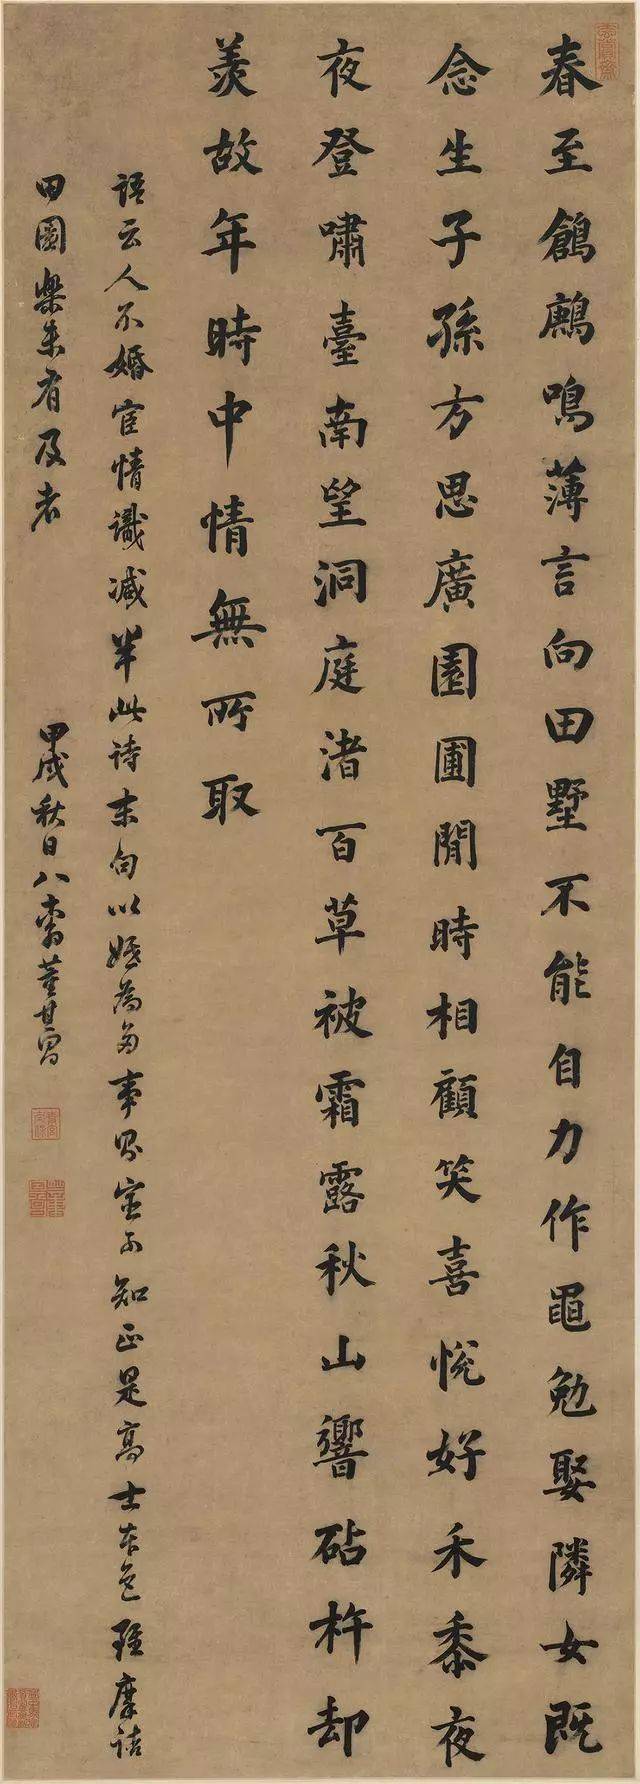 玄賞齋
春至鶬鶊鳴薄言向田墅不能自力作黽勉娶隣女既
念生子孫方思廣園圃閒時相顧笑喜悅好禾黍夜
夜登嘯臺南望洞庭渚百草被霜露秋山響砧杵却
羨故年時中情無所取
語云人不婚宦情識減半此詩末句以為多事不知正是高士本色雖摩詰
田園樂未有及者
甲戌秋日八董其昌